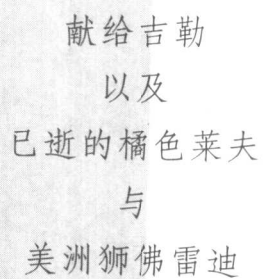 献给吉勒
以及
已逝的橘色莱夫
与
美洲狮佛雷迪